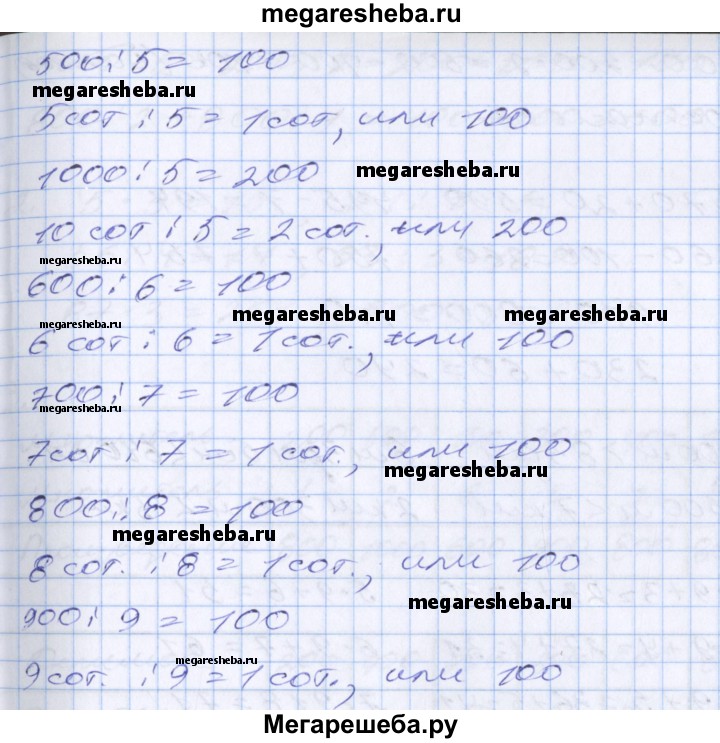 megaresheba.ru
500 : 5 = 100
megaresheba.ru
5 сот : 5 = 1 сот, или 100
1000 : 5 = 200
megaresheba.ru
10 сот : 5 = 2 сот., или 200
600 : 6 = 100
megaresheba.ru
megaresheba.ru
megaresheba.ru
6 сот : 6 = 1 сот., или 100
700 : 7 = 100
megaresheba.ru
7 сот : 7 = 1 сот., или 100
megaresheba.ru
800 : 8 = 100
megaresheba.ru
8 сот. : 8 = 1 сот., или 100
megaresheba.ru
900 : 9 = 100
megaresheba.ru
9 сот. : 9 = 1 сот., или 100
Мегарешеба.ру